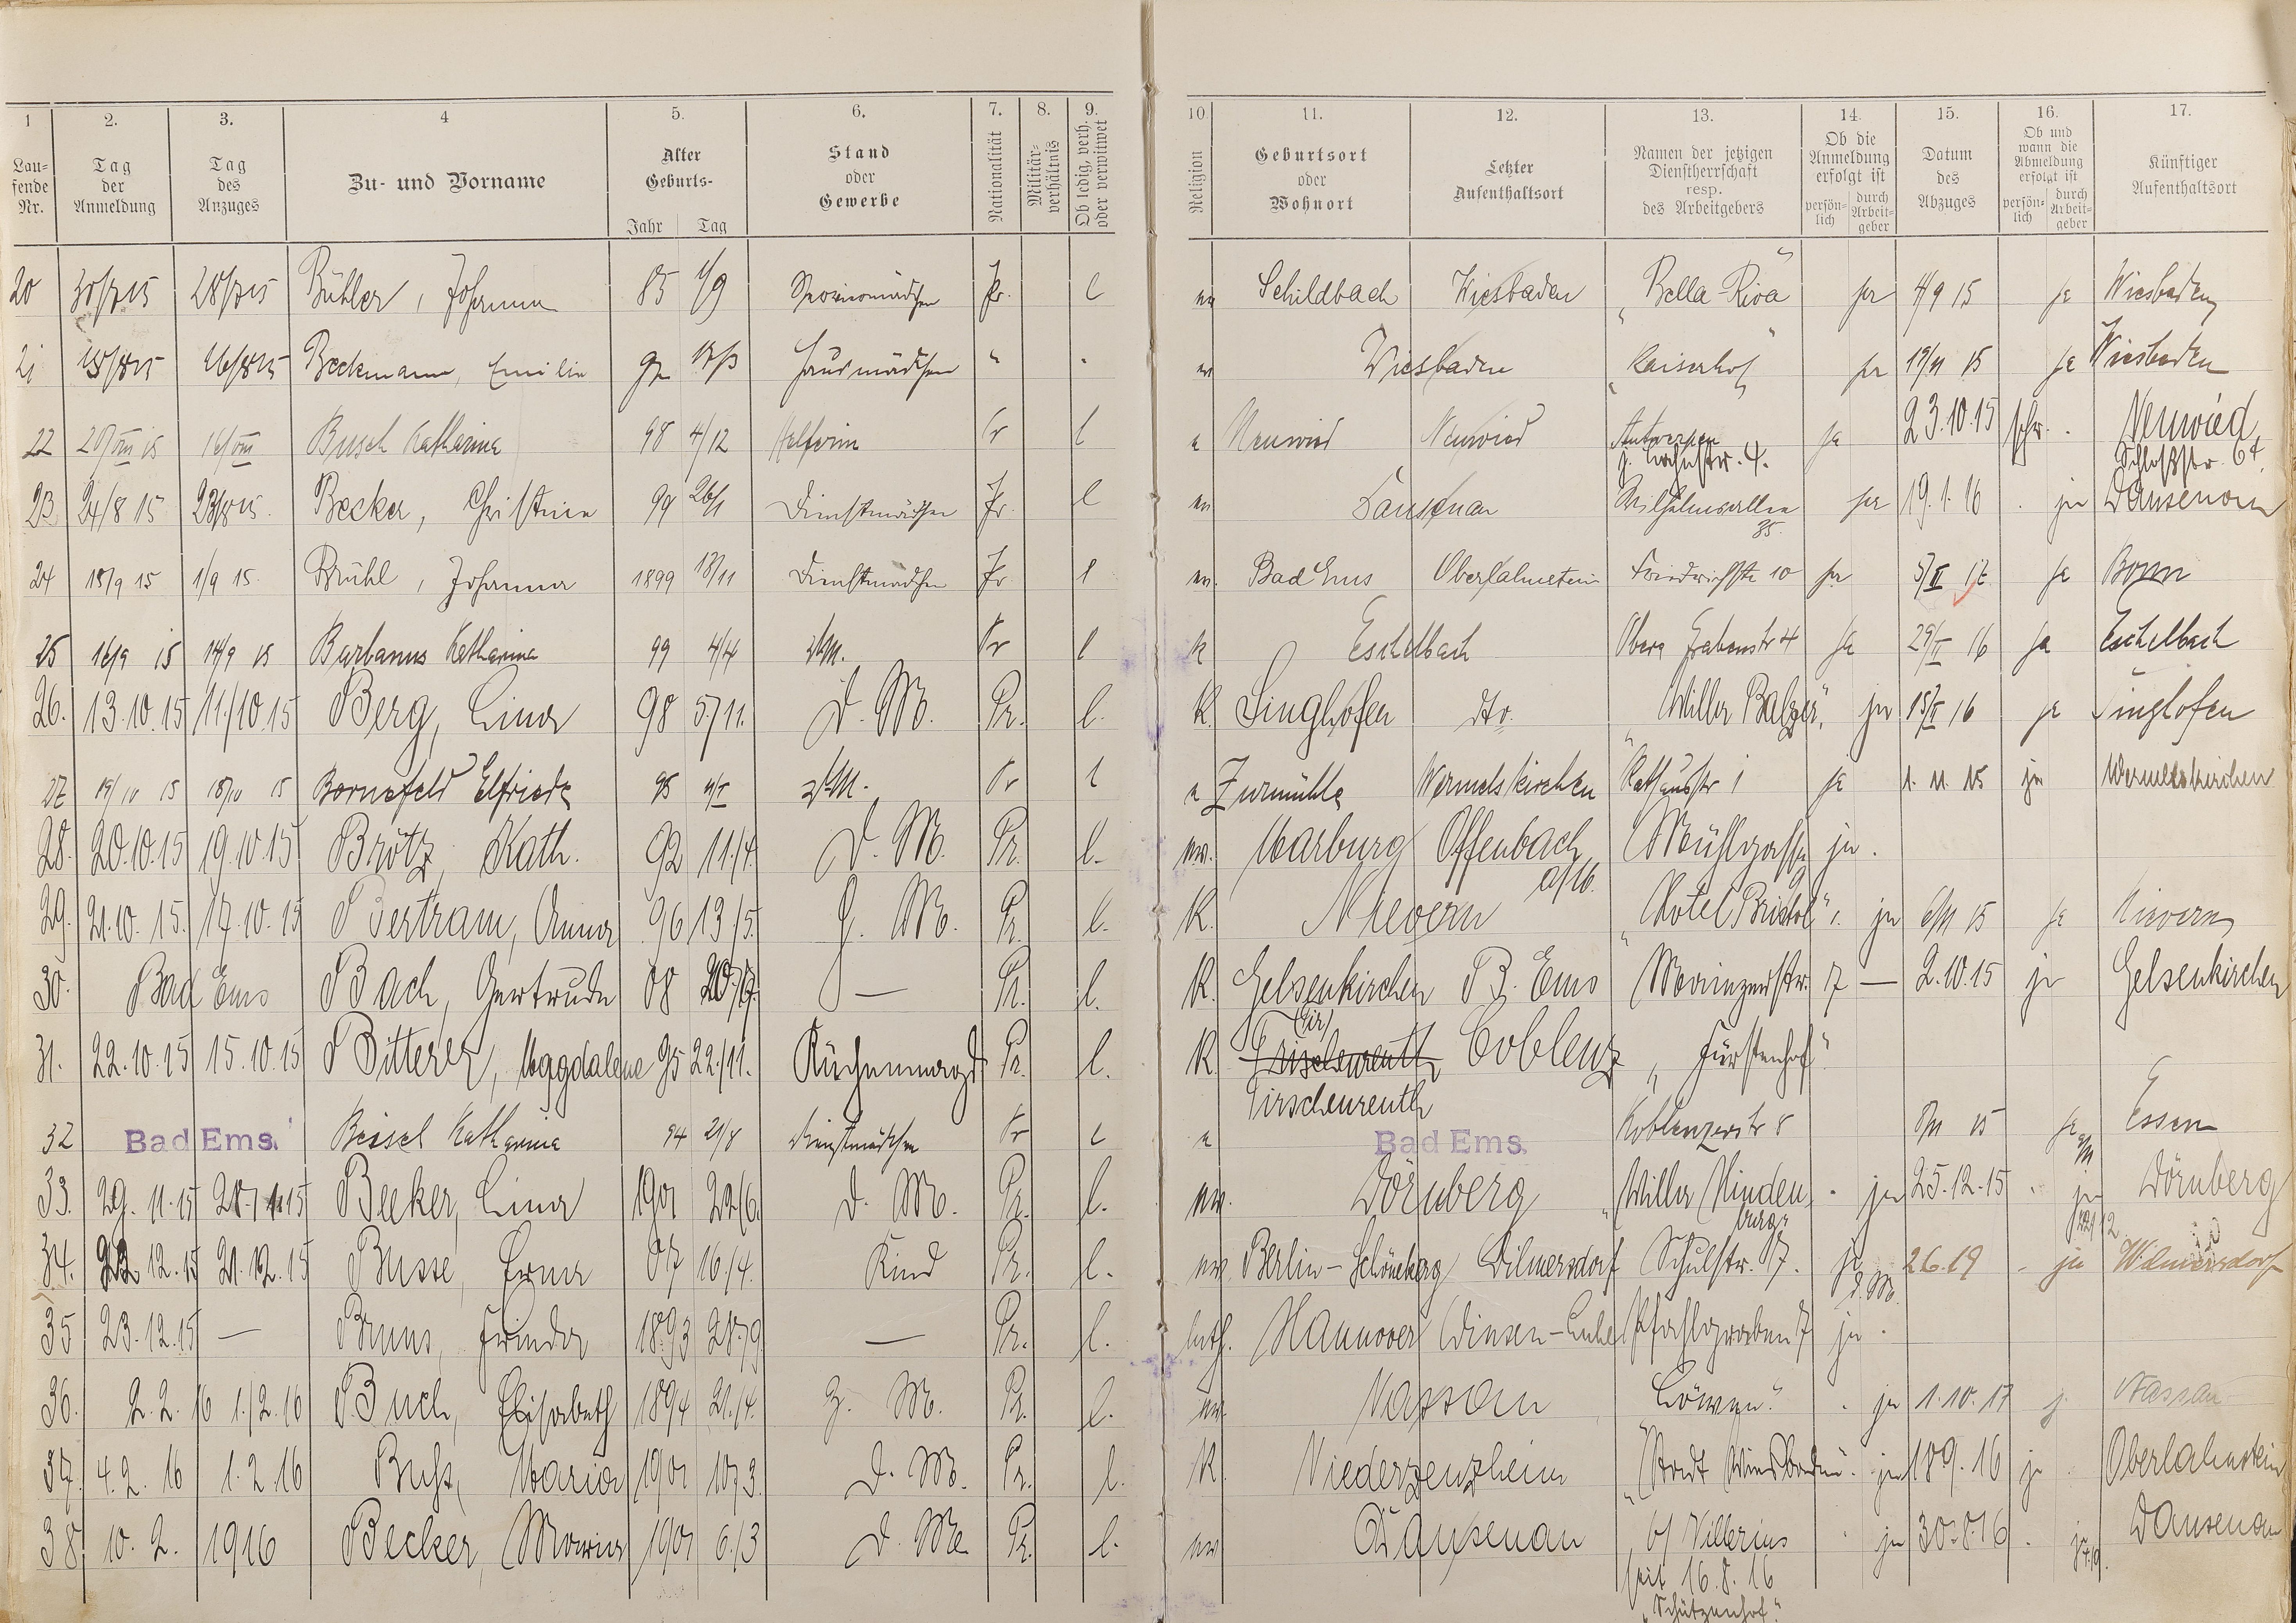 1 2. 3. 4 5. 6. 7. 8. 9. 10. 11. 12. 13. 14. 15. 16. 17.
Lau-
fende
Nr.
Tag
der
Anmeldung
Tag
des
Anzuges
Zu- und Vorname
Alter
Geburts-
Jahr Tag
Stand
oder
Gewerbe
Nationalität
Militär-
verhältnis
Ob ledig, verh.
oder verwitwet
Religion
Geburtsort
oder
Wohnort
Letzter
Aufenthaltsort
Namen der jetzigen
Dienstherrschaft
resp.
des Arbeitgebers
Ob die
Anmeldung
erfolgt ist
persön-
lich
durch
Arbeit-
geber
Datum
des
Abzuges
Ob und
wann die
Abmeldung
erfolgt ist
persön-
lich
durch
Arbeit-
geber
Künftiger
Aufenthaltsort
20 28/7 15 Bühler, Johanna 85 1/9 Pr. l ev Schildbach Wiesbaden "Bella-Riva" ja 4/9 15 ja Wiesbaden
21 16/8 15 Beckmann, Emilie Hausmädchen " ev Wiesbaden "Kaiserhof" ja 15 ja Wiesbaden
22 20/VIII 15 16/VIII Busch Katharina 98 4/12 Helferin Pr l e Neuwied Neuwied ja 23.10.15 Neuwied,
Schloßstr. 64.
23 24/8 15 23/8 15. Becker, Christine 99 26/1 Dienstmädchen Pr. l ev Dausenau Wilhelmsallee ja 19.1.16 ja Dausenau
35.
24 18/9 15 1/9 15. Brühl, Johanna 1899 18/11 Dienstmädchen Pr. l ev. Bad Ems Oberlahnstein Friedrichstr 10 ja 5/II 17 ja Bonn
25 16/9 15 14/9 15 Barbanus Katharina 99 4/4 Pr l k Eschelbach Obere Grabenstr 4 ja 16 ja Eschelbach
26. 13.10.15 11./10.15 Berg, Lina 98 5./11. D. M. Pr. l. K. Singhofen dto. "Villa Balzer", ja 16 ja Singhofen
27 19/10 15 18/10 15 Bornefeld Elfriede Pr l e Zurmühle Wermelskirchen Rathausstr 1 ja 1. 11. 15 ja Wermelskirchen
28. 20.10.15 19.10.15 Brötz, Kath. 92 11./4. D. M. Pr. l. ev. Marburg Offenbach Mühlgasse ja.
a/M.
29. 21.10.15. 17.10.15 Bertram, Anna 96 13/5. M. Pr. l. K. Nievern "Hotel Bristol". ja 6/11 15 ja Nievern
30. Bad Ems Bach, Gertrude 08 — Pr. l. K. Gelsenkirchen B. Ems Mainzerstr. 17 — 2.10.15 ja Gelsenkirchen
31. 22.10.15 15.10.15 Bitterer, Magdalene 95 22./11. Küchenmagd Pr. l. K. Coblenz "Fürstenhof"
Tirschenreuth
32 Bad Ems. Beissel Katharina 94 21/8 Dienstmädchen Pr l e Bad Ems. Koblenzerstr 8 8/11 15 ja Essen
33. 29.11.15 Becker, Lina 1901 22/6. D. M. Pr. l. ev. Dörnberg "Villa Hinden- ja 25.12.15 ja Dörnberg
burg"
34. 22 12.15 21.12.15 Busse, Erna 07 16./4. Kind Pr. l. ev Berlin-Schöneberg Wilmersdorf Schulstr. 17. ja 26.19 ja Wilmersdorf
35 23.12.15 — Bruns, Frieda 1893 28./9. — Pr. l. luth. Hannover Winsen-Luhe Pfahlgraben 7 ja.
36. 2.2.16 1./2.16 Buch, Elisabeth 1894 21./4. Z. M. Pr. l. ev. Nassau Löwen". ja 1.10.17 j. Nassau
37. 4.2.16 1.2.16 Buss, Maria 1901 10/3. D. M. Pr. l. K. Niederzeuzheim "Stadt Wiesbaden". ja 18.9.16 ja Oberlahnstein
38. 10.2. 1916 Becker, Maria 1901 6./3 D. M. Pr. l. ev Dausenau ja 30.8.16 ja Dausenau
seit 16.8.16
"Schützenhof".